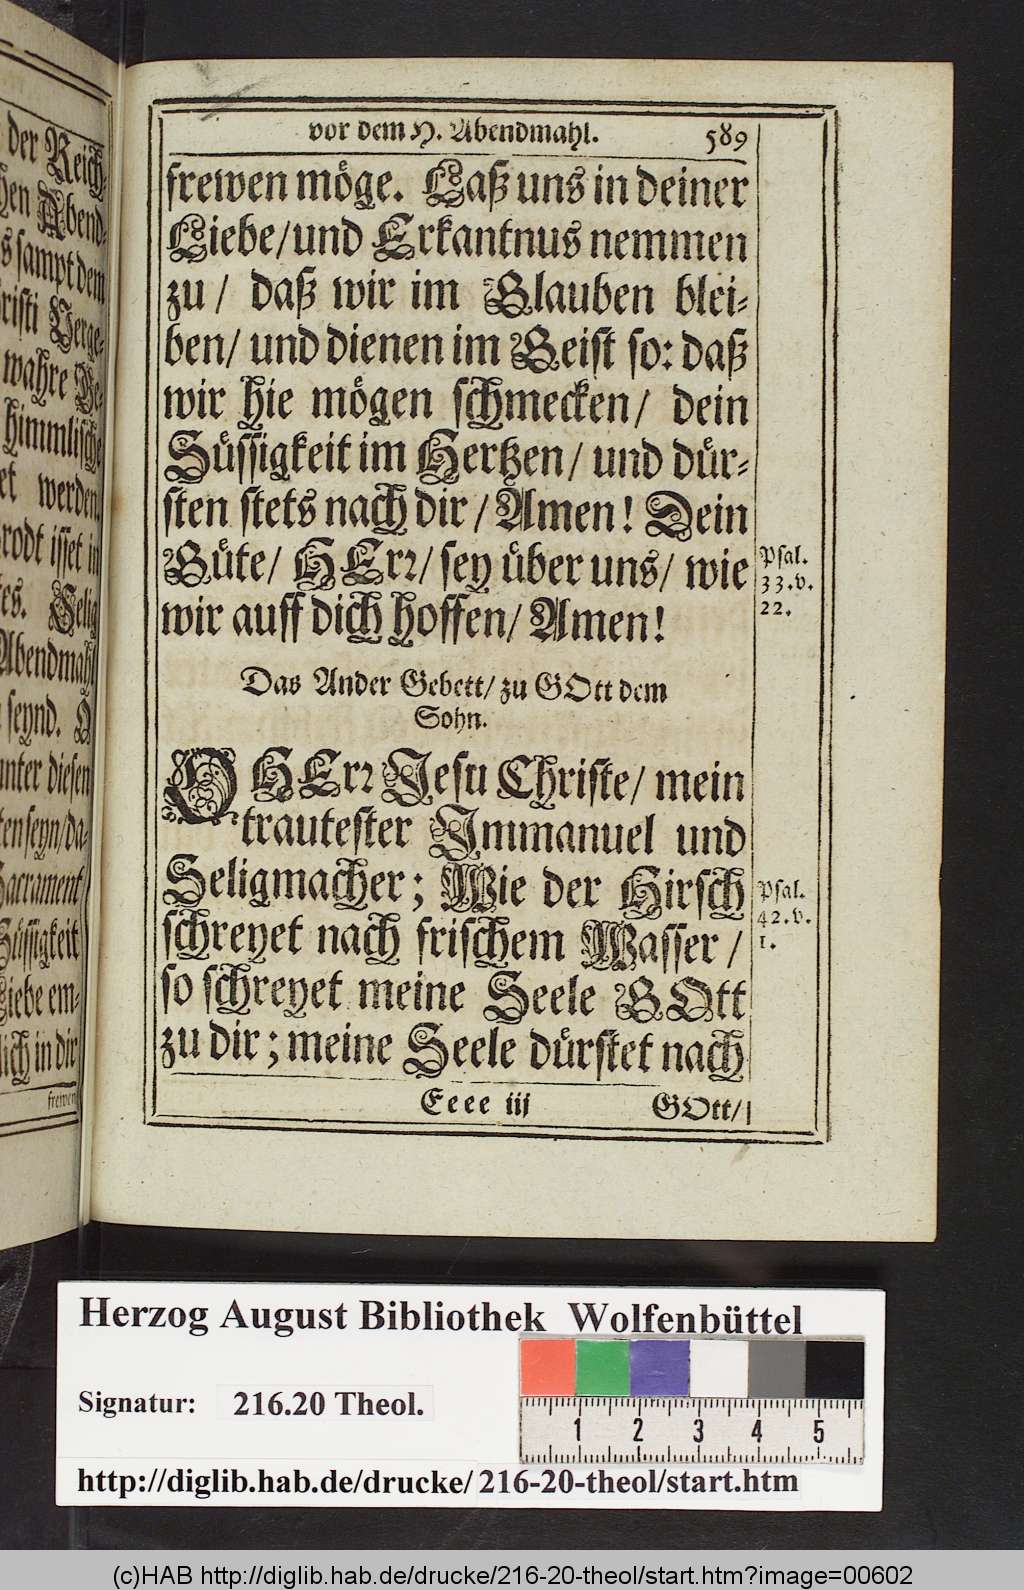 der Reich-
hen Abend-
s sampt dem
risti Verge-
wahre Je-
himmlische
et werden.
rodt isset in
es. Selig
Abendmahl
seynd. O
unter diesen
ten seyn/da-
Sacrament
Süssigkeit
Liebe em-
lich in dir
frewen
vor dem H. Abendmahl. 589
frewen möge. Laß uns in deiner
Liebe/und Erkantnus nemmen
zu/ daß wir im Glauben blei-
ben/ und dienen im Geist so: daß
wir hie mögen schmecken/ dein
Süssigkeit im Hertzen/ und dür-
sten stets nach dir/ Amen! Dein
Güte/ HErr/ sey über uns/ wie
wir auff dich hoffen/ Amen!
Psal.
33.v.
22.
Das Ander Gebett/ zu GOtt dem
Sohn.
O HErr Jesu Christe/ mein
trautester Immanuel und
Seligmacher; Wie der Hirsch
schreyet nach frischem Wasser/
so schreyet meine Seele GOtt
zu dir; meine Seele dürstet nach
Psal.
42.v.
1.
Eeee iij GOtt/
Herzog August Bibliothek Wolfenbüttel
Signatur: 216.20 Theol.
1 2 3 4 5
http://diglib.hab.de/drucke/ 216-20-theol/start.htm
(c)HAB http://diglib.hab.de/drucke/216-20-theol/start.htm?image=00602